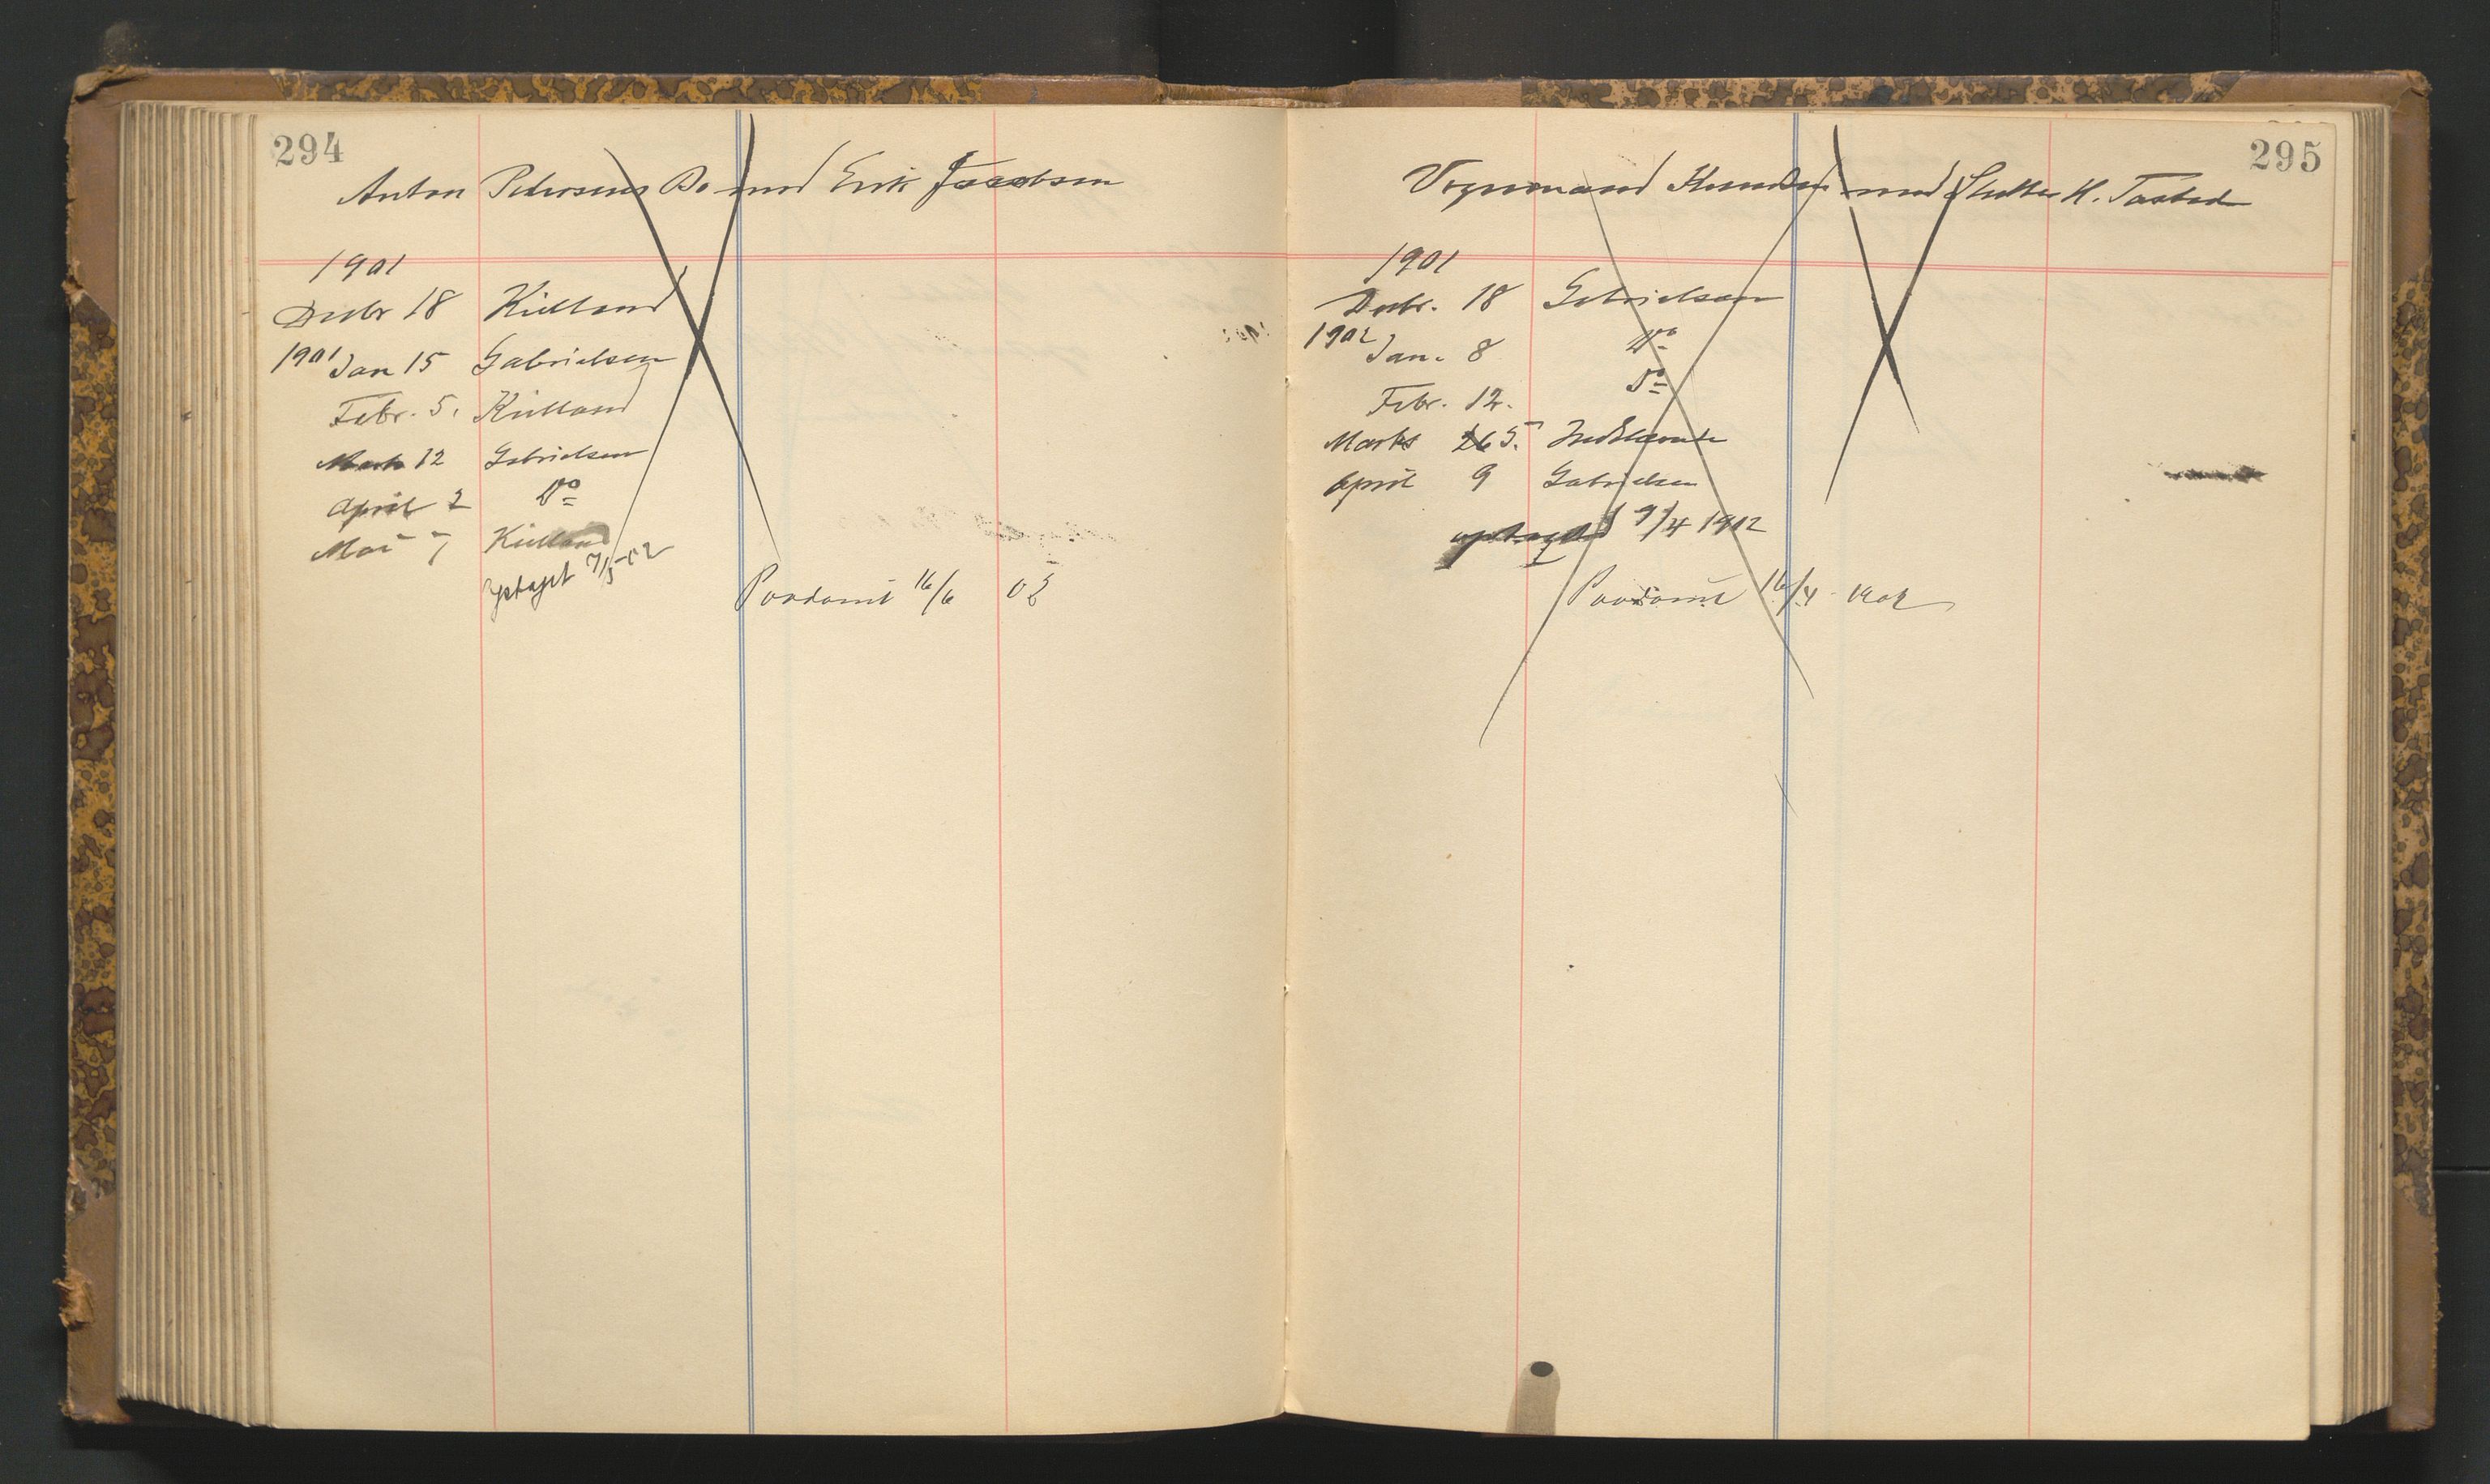 294
Anton Petersens Bo mod Erik Jacobsen
1901
Decbr 18 Kielland
1901 Jan 15 Gabrielsen
Febr. 5. Kielland
Marts 12 Gabrielsen
April 2 Do
Mai 7 Kielland
Optaget 7/5 02
Paadømt 16/6 02
295
Vognmand Knudsen mod H. Tasted
1901
Decbr. 18 Gabrielsen
1902 Jan. 8 Do
Febr. 12. Do
Marts 5. Indstævnte
April 9 Gabrielsen
optaget 9/4 1902
Paadømt 16/4 1902